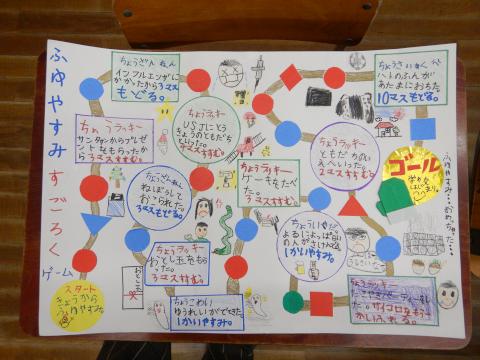 ふゆやすみすごろく
ゲーム
スタート
きょうから
ふゆやすみ
ちょうざんねん
インフルエンザに
かかったから3マス
もどる。
ちょうラッキー
サンタからプレゼ
ントをもらったから
3マスすすむ。
ちょうラッキー
USJにとう
きょうのともだち
といった。
ちょうざんねん
ねぼうして
おこられた。
3マスもどる。
ちょうラッキー
おとし玉をもら
った。
3マスすすむ。
ちょうこわい
ゆうれいがでてきた
1かいやすみ。
ちょうラッキー
ケーキをたべ
た。
3マスすすむ。
ちょういやだ。
よるによっぱらい
の人がさけんでる
1かいやすみ。
ちょうラッキー
ともだちのい
えへいった。
2マスすすむ。
はとのふんが
あたまにおちた
10マスもどる。
ゴール
ちょうラッキー